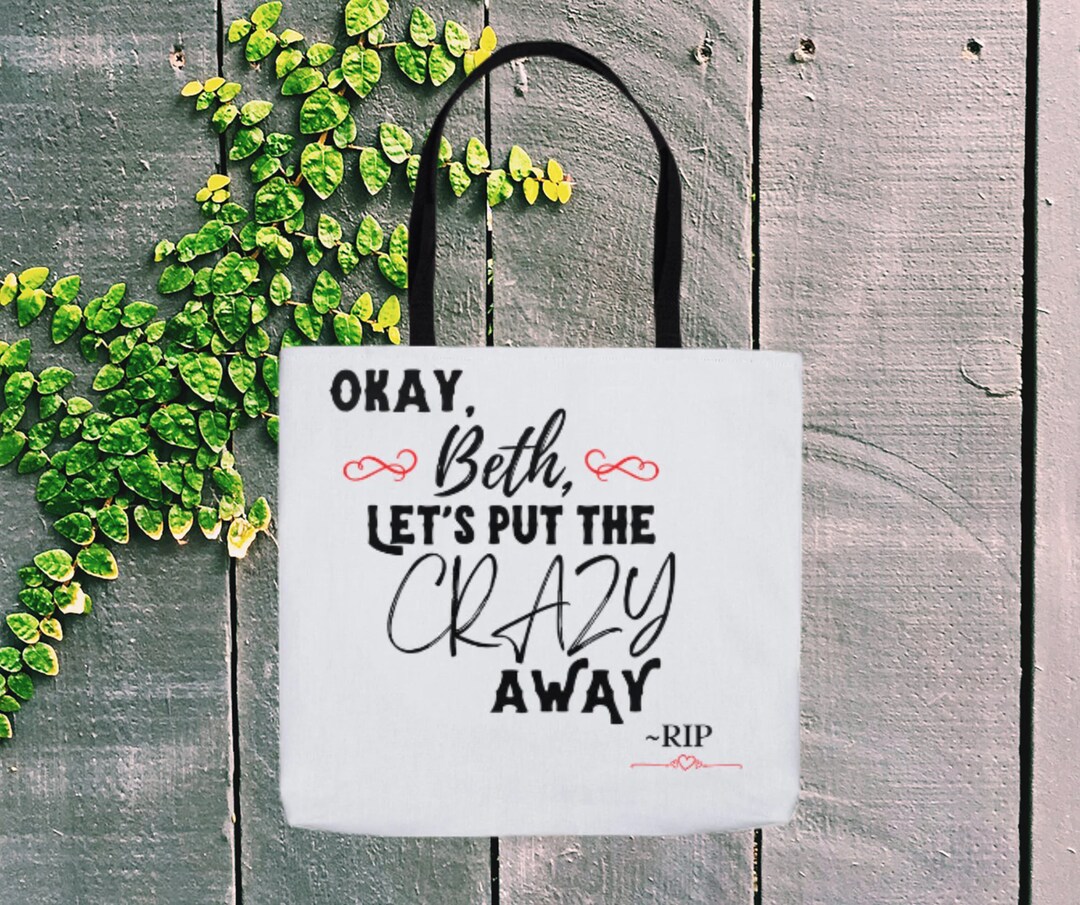 OKAY,
Beth,
LET'S PUT THE
CRAZY
AWAY
~RIP